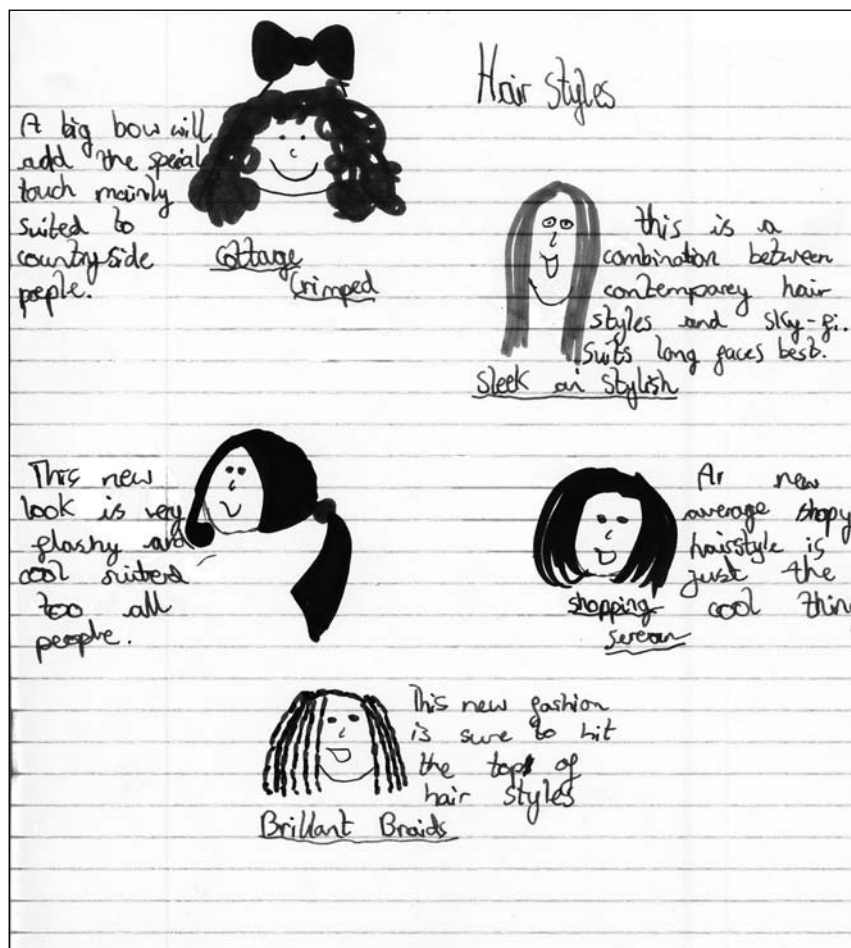 Hair Styles
A big bow will
add the special
touch mainly
suited to
countryside
people.
Cottage
Crimped
this is a
combination between
contemparey hair
styles and sky-fi..
Suits long faces best.
Sleek an Stylish
This new
look is very
flashy and
cool suiterd
too all
people.
Ar new
average shopy
hairstyle is
just the
cool thin
shopping
This new fashion
is sure to hit
the top of
hair styles
Brillant Braids